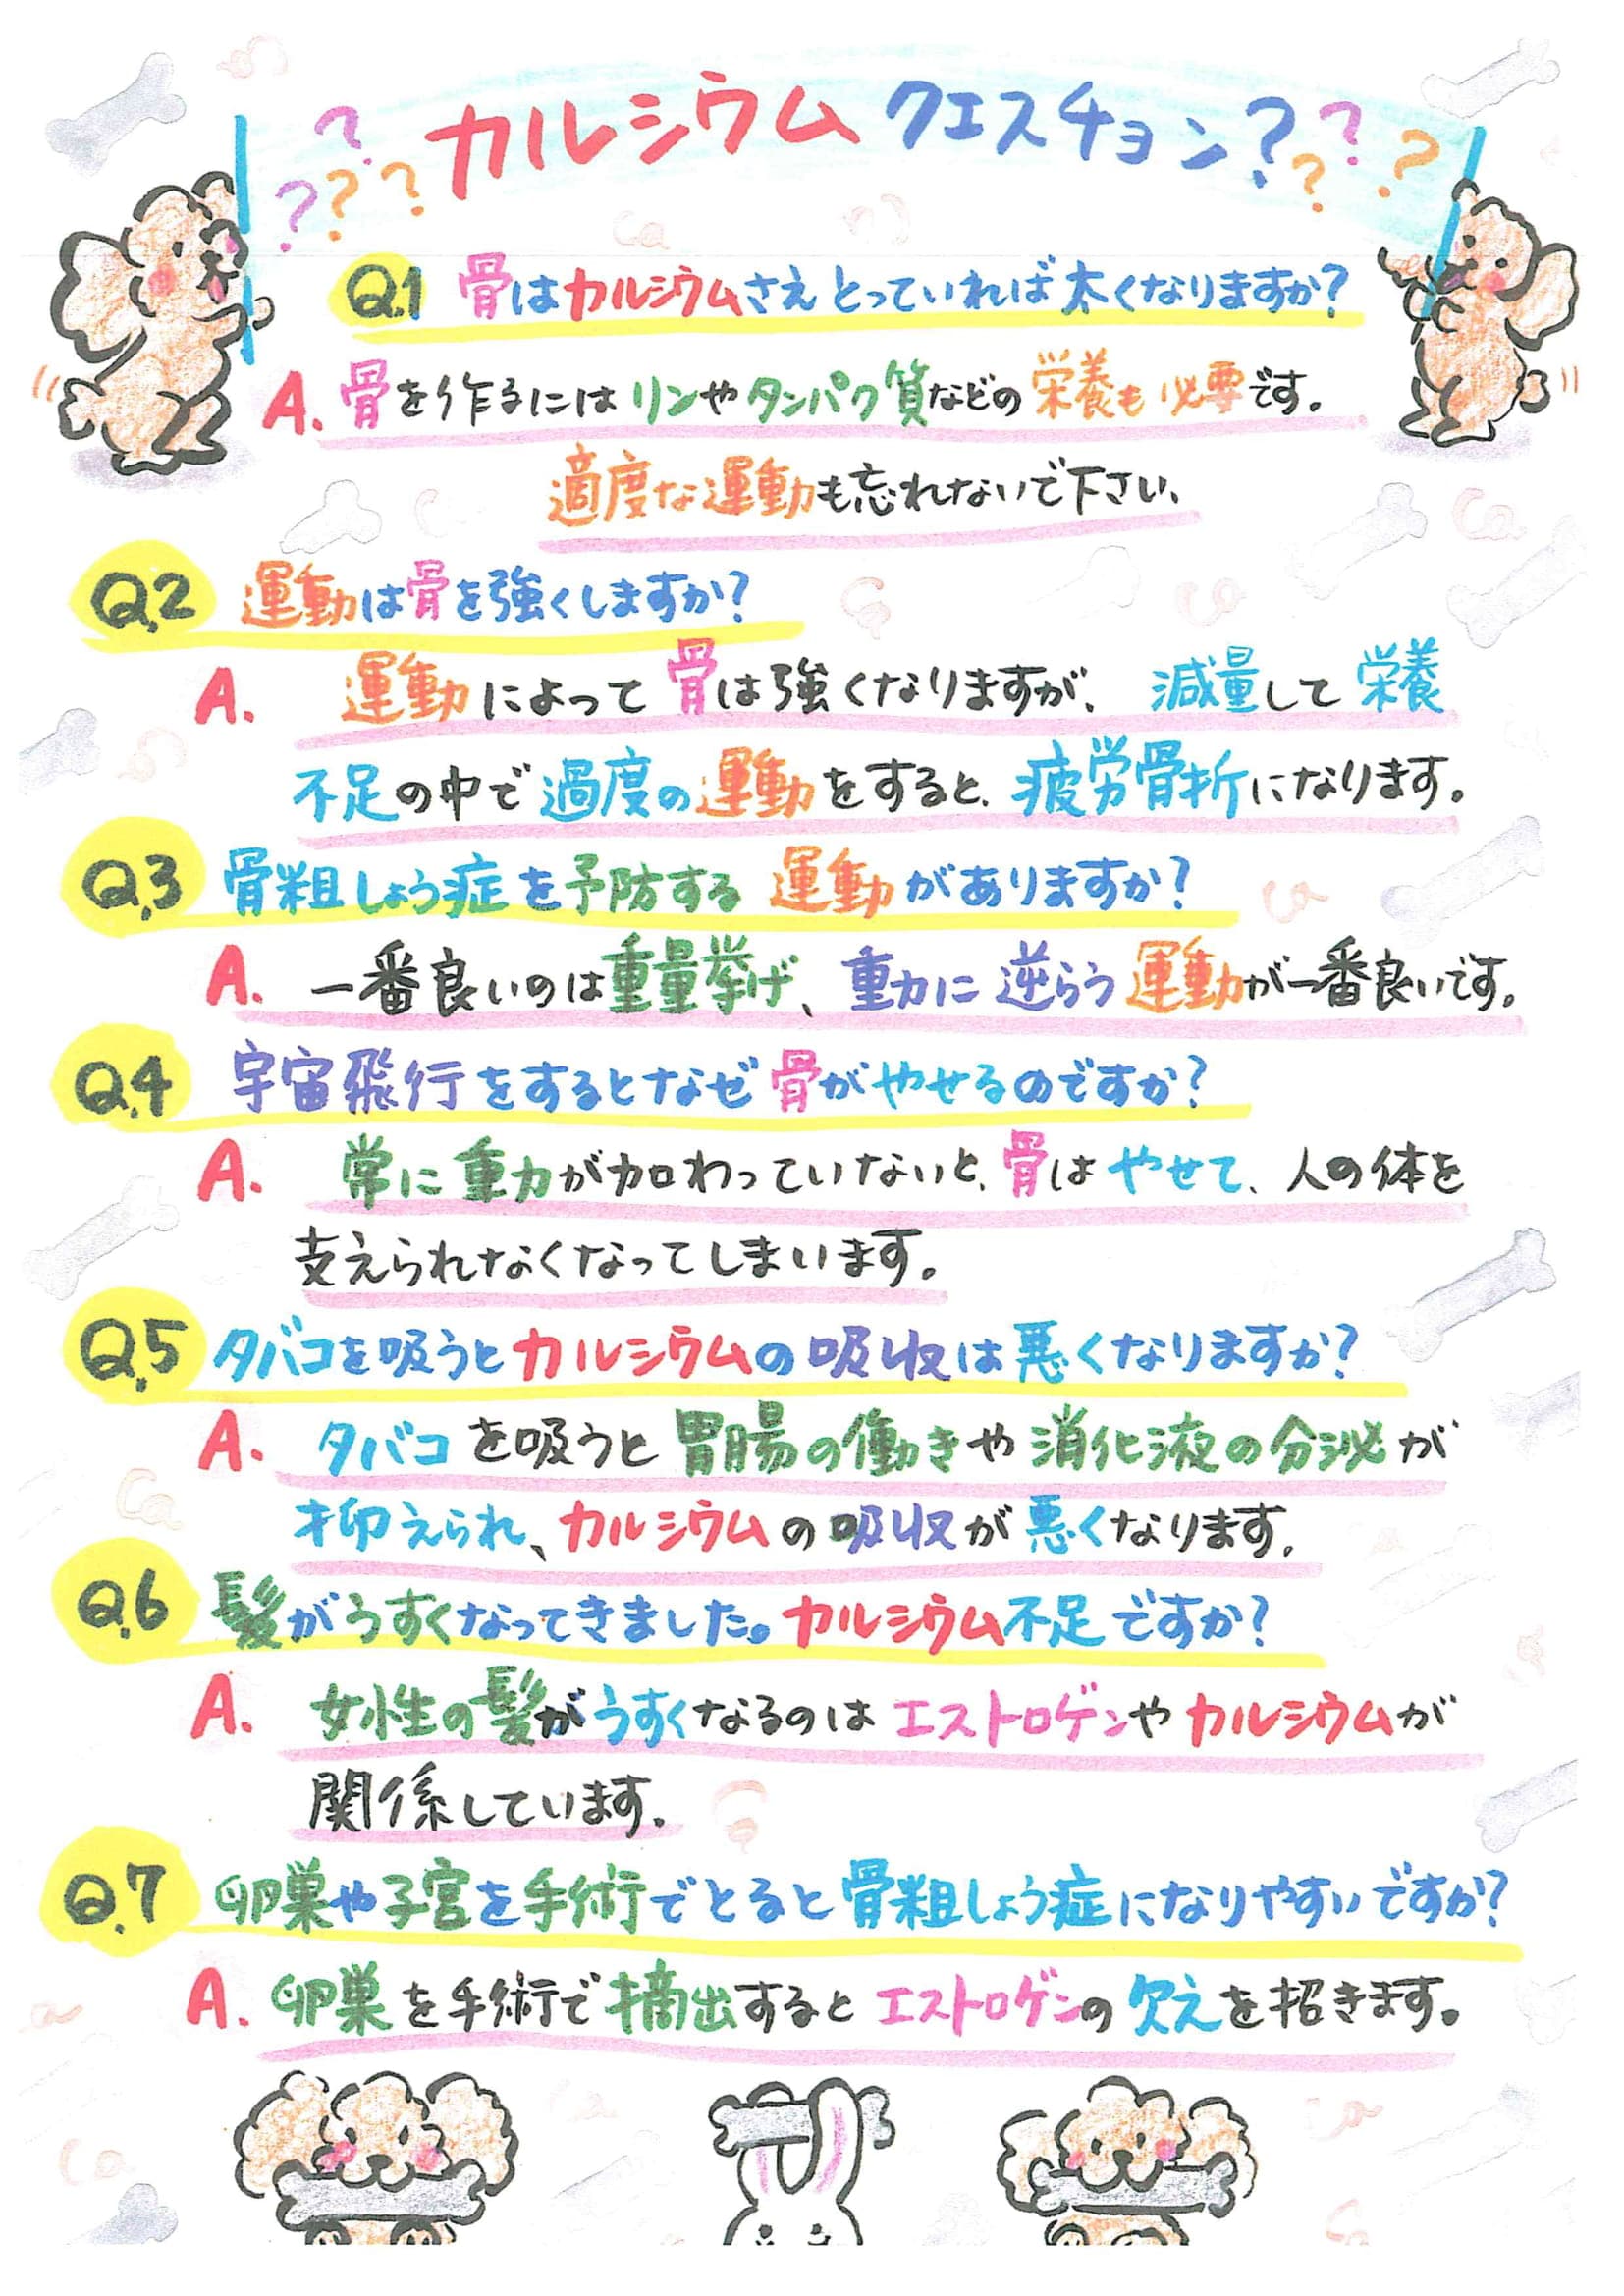 ???カルシウムクエスチョン????
Q.1 骨はカルシウムさえとっていれば太くなりますか?
A. 骨を作るにはリンやタンパク質などの栄養も必要です。
適度な運動も忘れないで下さい、
Q.2 運動は骨を強くしますか?
A. 運動によって骨は強くなりますが、減量して栄養
不足の中で過度の運動をすると、疲労骨折になります。
Q.3 骨粗しょう症を予防する運動がありますか?
A. 一番良いのは重量挙げ、重力に逆らう運動が一番良いです。
Q.4 宇宙飛行をするとなぜ骨がやせるのですか?
A. 常に重力が加わっていないと、骨はやせて、人の体を
支えられなくなってしまいます。
Q.5 タバコを吸うとカルシウムの吸収は悪くなりますか?
A. タバコを吸うと胃腸の働きや消化液の分泌が
抑えられ、カルシウムの吸収が悪くなります。
Q.6 髪がうすくなってきました。カルシウム不足ですか?
A. 女性の髪がうすくなるのはエストロゲンやカルシウムが
関係しています。
Q.7 卵巣や子宮を手術でとると骨粗しょう症になりやすいですか?
A. 卵巣を手術で摘出するとエストロゲンの欠えを招きます。